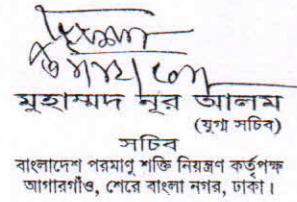 মুহাম্মদ নূর আলম
(যুগ্ম সচিব)
সচিব
বাংলাদেশ পরমাণু শক্তি নিয়ন্ত্রণ কর্তৃপক্ষ
আগারগাঁও, শেরে বাংলা নগর, ঢাকা।